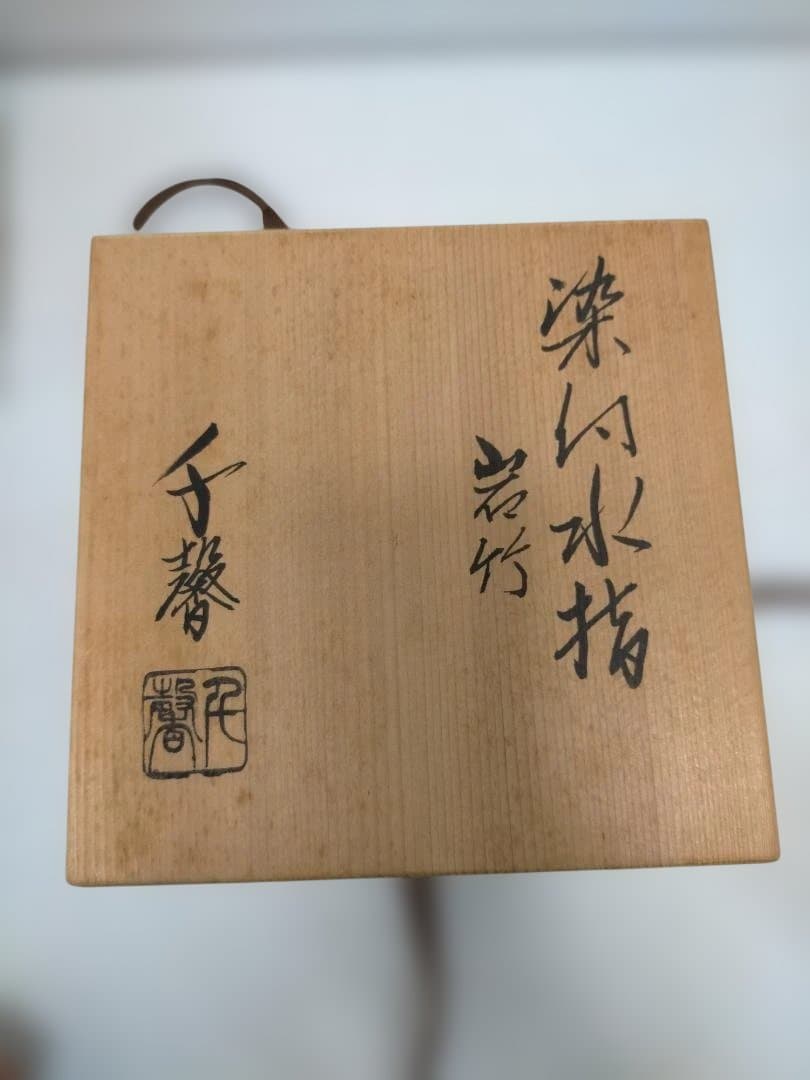 染付水指
岩竹
千馨
千馨